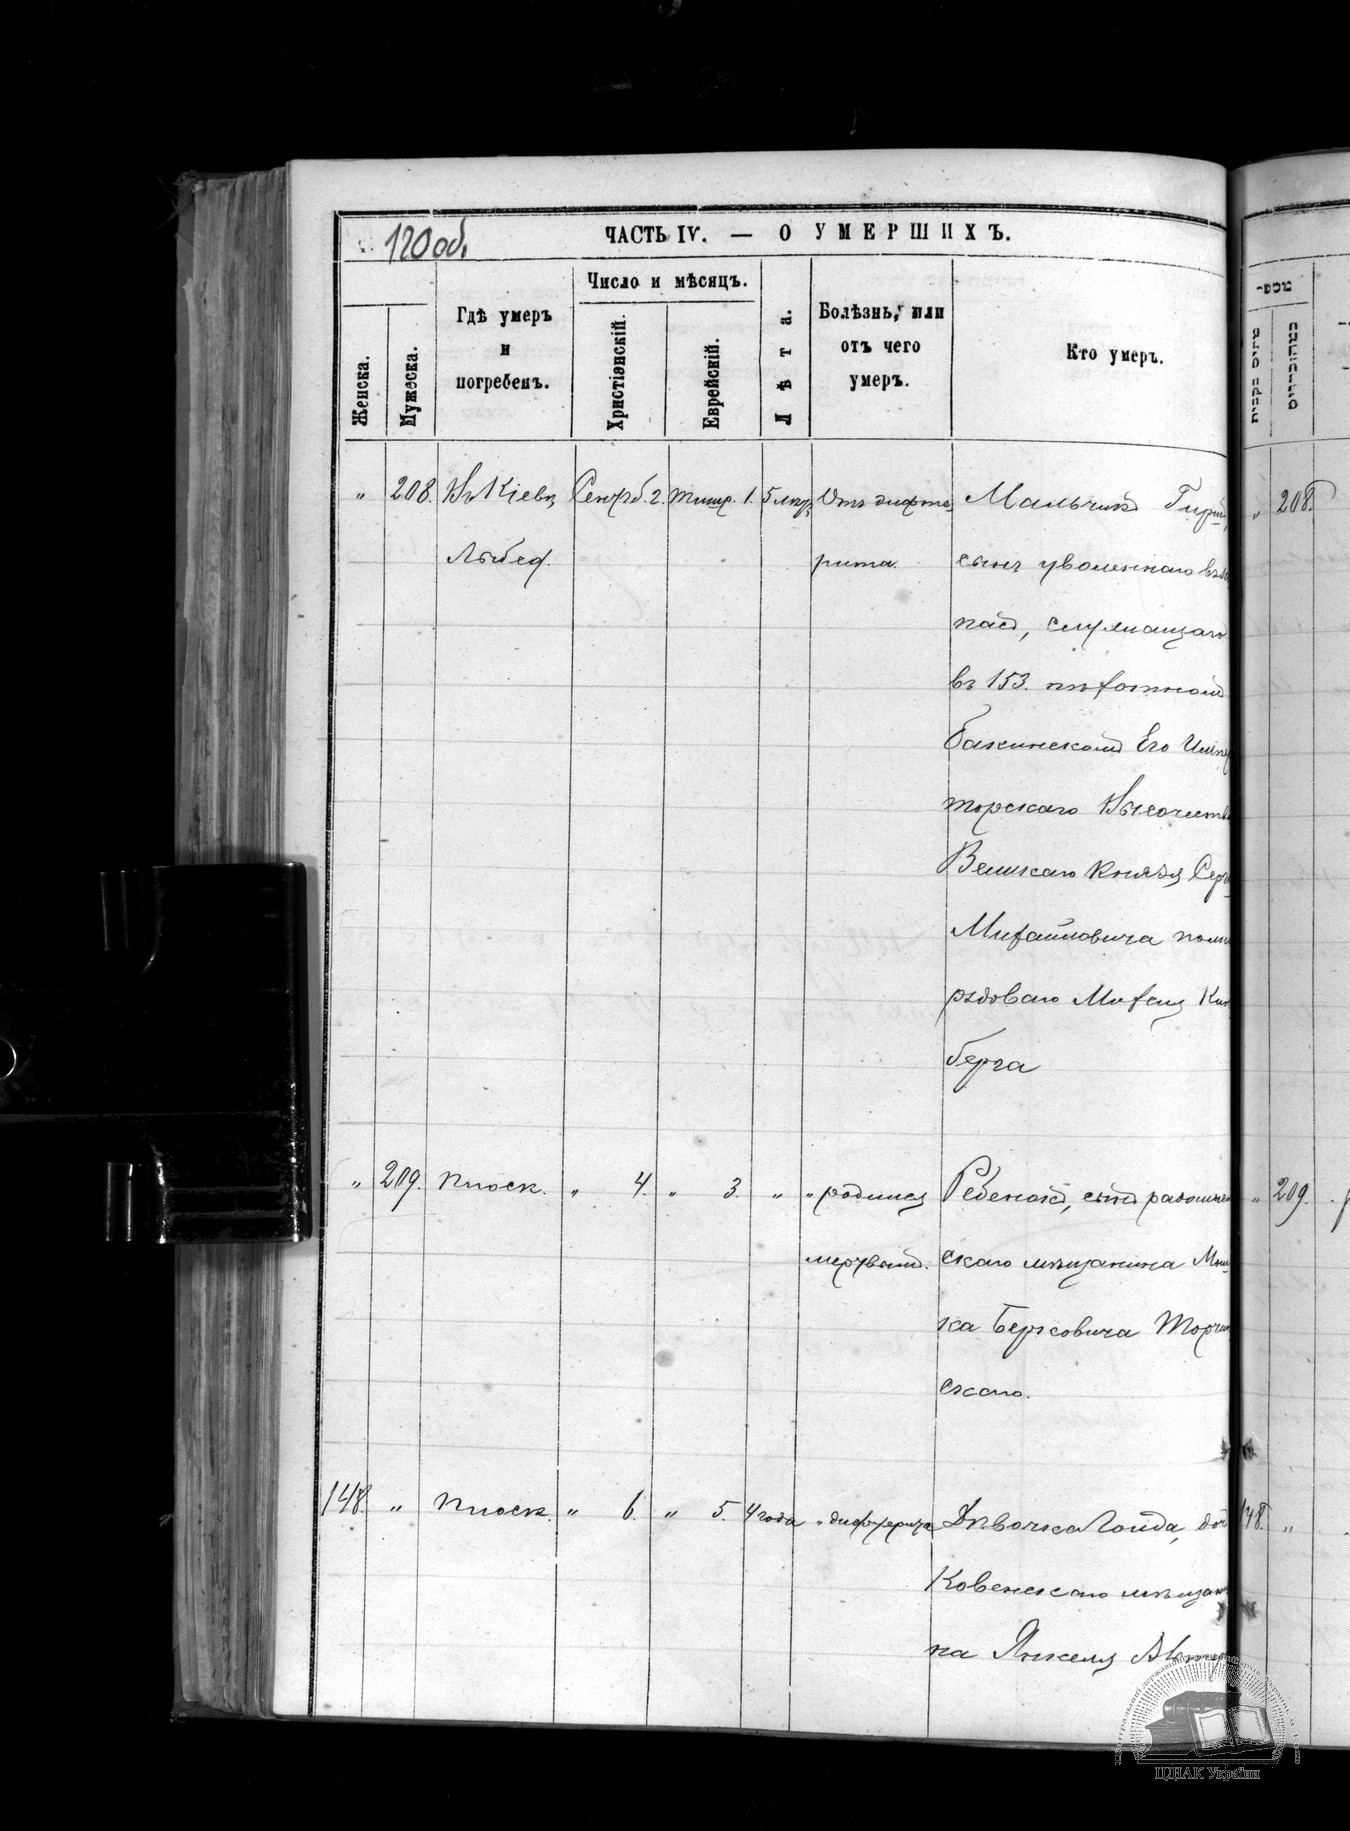 120 об.
ЧАСТЬ IV. — О УМЕРШИХЪ.
Женска.
Мужеска.
Гдѣ умеръ
и
погребенъ.
Число и мѣсяцъ.
Христіянскій.
Еврейскій.
Лѣта.
Болѣзнь, или
отъ чего
умеръ.
Кто умеръ.
„ 208. Въ Кіевѣ, Сентяб. 2. Тишр. 1. 5 лѣтъ Отъ дифте- Мальчикъ
Лыбед. рита. сынъ уволеннаго въ
пасъ, служащаго
въ 153. пѣхотномъ
Бакинскомъ Его Импер
торскаго Высочества
Великаго Князя Серг
Михайловича полку
рядоваго Михеля
берга
„ 209. Плоск. „ 4. „ 3. „ „ родился Ребенокъ, сынъ радомысль
мертвый. скаго мѣщанина Мош-
ка Берковича Торчин
скаго.
148. „ Плоск. „ 6. „ 5. 4 года „ дифтерита Дѣвочка Голда, доч
Ковенскаго мѣщани
на Янкеля
„ 208.
„ 209.
148. „
ЦДІАК України